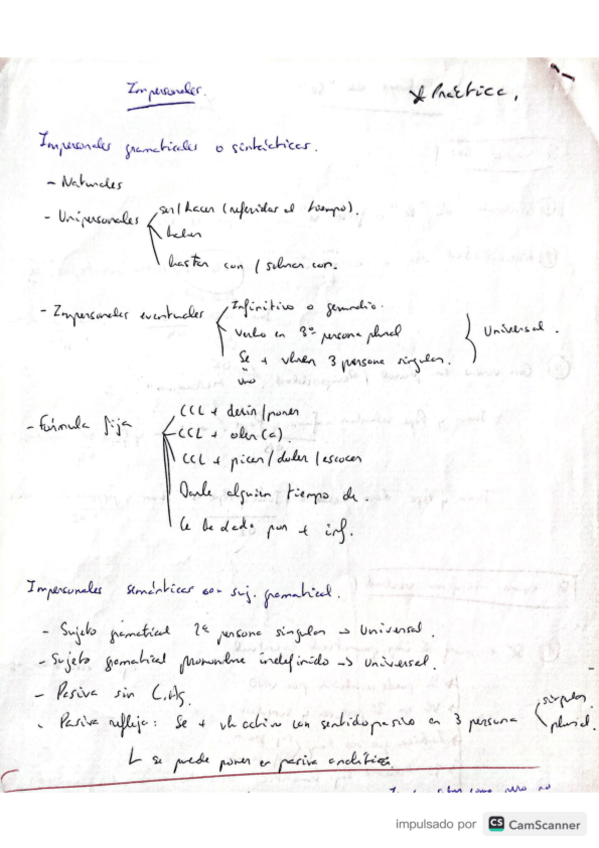 Impersonales.
* Práctica.
Impersonales gramaticales o sintácticas.
- Naturales
- Unipersonales
ser/hacer (referidas al tiempo).
haber
bastar con / sobrar con.
- Impersonales eventuales
Infinitivo o gerundio.
verbo en 3ª persona plural
Se + vb en 3 persona singular.
uno.
Universal.
- Fórmula fija
CCL + decir/poner
CCL + oler (a).
CCL + picar/doler/escocer
Darle alguien tiempo de.
Le ha dado por + inf.
Impersonales semánticas con suj. gramatical.
- Sujeto gramatical 2ª persona singular → Universal.
- Sujeto gramatical pronombre indefinido → Universal.
- Pasiva sin C.Ag.
- Pasiva refleja: Se + vb activo con sentido pasivo en 3 persona
singular
plural.
↳ se puede poner en pasiva analítica.
como pero no
impulsado por CS CamScanner